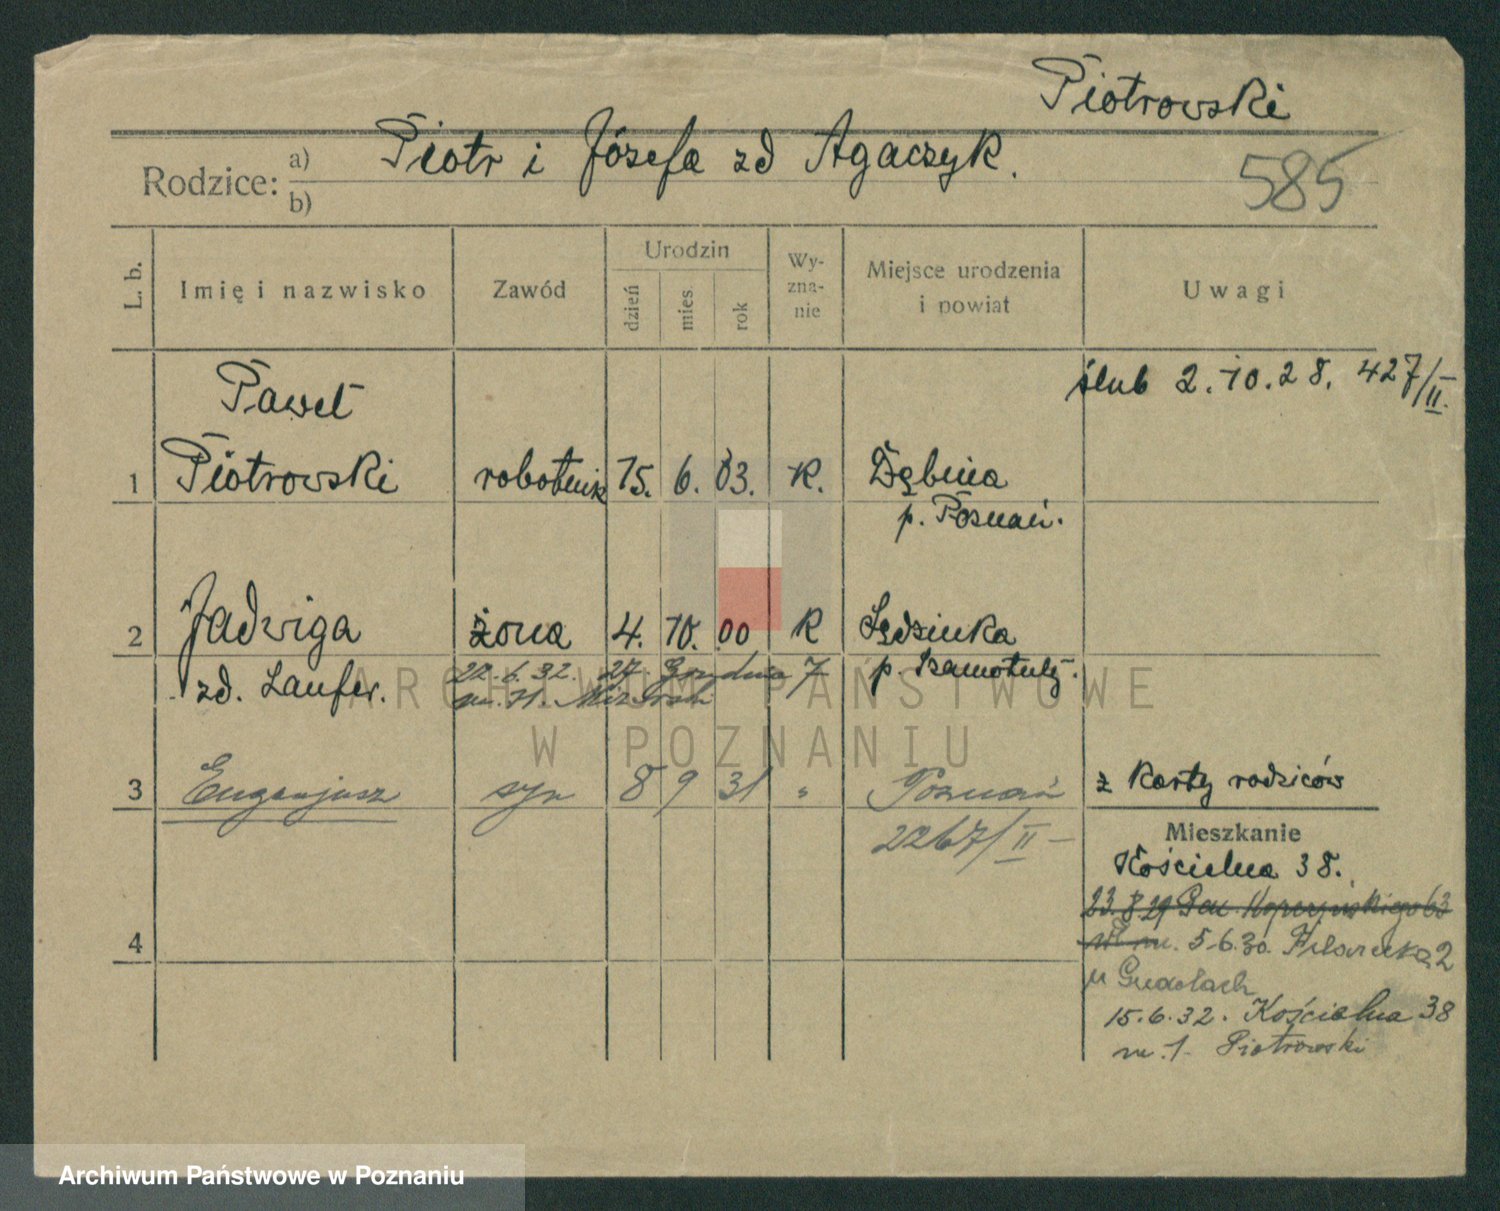 Piotrowski
Rodzice: a) Piotr i Józefa zd Agaczyk.
b)
585
L. b. Imię i nazwisko Zawód Urodzin dzień mies. rok Wy-zna-nie Miejsce urodzenia i powiat Uwagi
ślub 2.10.28. 427/II.
Paweł
1 Piotrowski robotnik 15. 6. 03. K. Dębina
p. Poznań.
2 Jadwiga żona 4. 10. 00 K
zd. Laufer. p. Szamotuły.
22.6.32. 27 Grudnia 7
m. 11.
3 Eugenjusz syn 8 9 31 " Poznań z karty rodziców
2267/II -
Mieszkanie
Kościelna 38.
23.8.29
4
m. 5.6.30. Filarecka 2
u
15.6.32. Kościelna 38
m. 1. Piotrowski
ARCHIWUM PAŃSTWOWE
W POZNANIU
Archiwum Państwowe w Poznaniu